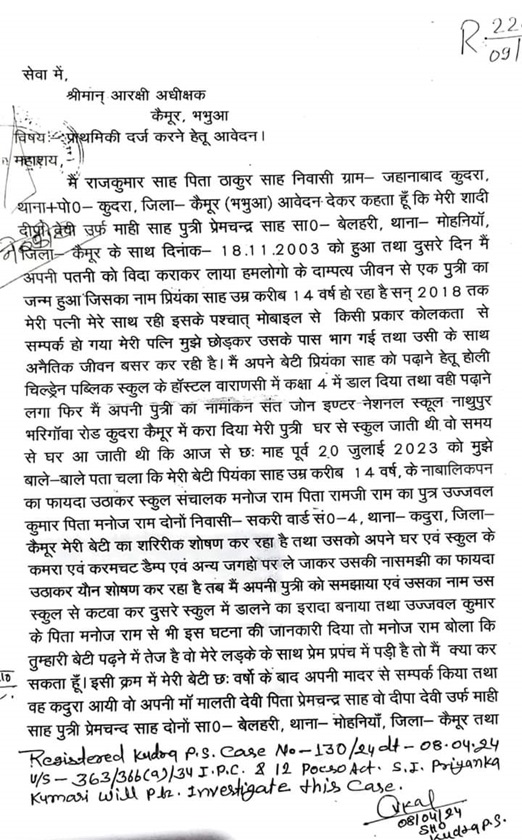 R. 22
09/
सेवा में,
श्रीमान् आरक्षी अधीक्षक
कैमूर, भभुआ
विषय:- प्राथमिकी दर्ज करने हेतू आवेदन।
महाशय,
मैं राजकुमार साह पिता ठाकुर साह निवासी ग्राम– जहानाबाद कुदरा,
थाना+पो0– कुदरा, जिला– कैमूर (भभुआ) आवेदन देकर कहता हूँ कि मेरी शादी
देवी उर्फ माही साह पुत्री प्रेमचन्द्र साह सा0– बेलहरी, थाना– मोहनियाँ,
जिला– कैमूर के साथ दिनांक– 18.11.2003 को हुआ तथा दुसरे दिन मैं
अपनी पतनी को विदा कराकर लाया हमलोगो के दाम्पत्य जीवन से एक पुत्री का
जन्म हुआ जिसका नाम प्रियंका साह उम्र करीब 14 वर्ष हो रहा है सन् 2018 तक
मेरी पत्नी मेरे साथ रही इसके पश्चात् मोबाइल से किसी प्रकार कोलकता से
सम्पर्क हो गया मेरी पत्नि मुझे छोड़कर उसके पास भाग गई तथा उसी के साथ
अनैतिक जीवन बसर कर रही है। मैं अपने बेटी प्रियंका साह को पढ़ाने हेतू होली
चिल्ड्रेन पब्लिक स्कुल के हॉस्टल वाराणसी में कक्षा 4 में डाल दिया तथा वही पढ़ाने
लगा फिर मैं अपनी पुत्री का नामांकन संत जोन इण्टर नेशनल स्कूल नाथुपुर
भरिगॉवा रोड कुदरा कैमूर में करा दिया मेरी पुत्री घर से स्कुल जाती थी वो समय
से घर आ जाती थी कि आज से छः माह पूर्व 20 जुलाई 2023 को मुझे
बाले–बाले पता चला कि मेरी बेटी पियंका साह उम्र करीब 14 वर्ष, के नाबालिकपन
का फायदा उठाकर स्कुल संचालक मनोज राम पिता रामजी राम का पुत्र उज्जवल
कुमार पिता मनोज राम दोनों निवासी– सकरी वार्ड सं0–4, थाना– कदुरा, जिला–
कैमूर मेरी बेटी का शरिरीक शोषण कर रहा है तथा उसको अपने घर एवं स्कुल के
कमरा एवं करमचट डैम्प एवं अन्य जगहो पर ले जाकर उसकी नासमझी का फायदा
उठाकर यौन शोषण कर रहा है तब मैं अपनी पुत्री को समझाया एवं उसका नाम उस
स्कुल से कटवा कर दुसरे स्कुल में डालने का इरादा बनाया तथा उज्जवल कुमार
के पिता मनोज राम से भी इस घटना की जानकारी दिया तो मनोज राम बोला कि
तुम्हारी बेटी पढ़ने में तेज है वो मेरे लड़के के साथ प्रेम प्रपंच में पड़ी है तो मैं क्या कर
सकता हूँ। इसी क्रम में मेरी बेटी छः वर्षो के बाद अपनी मादर से सम्पर्क किया तथा
वह कदुरा आयी वो अपनी मॉ मालती देवी पिता प्रेमचन्द्र साह वो दीपा देवी उर्फ माही
साह पुत्री प्रेमचन्द साह दोनों सा0– बेलहरी, थाना– मोहनियाँ, जिला– कैमूर तथा
Registered Kudra P.S. Case No-130/24 dt - 08.04.24
U/S - 363/366(a)/34 I.P.C. & 12 Pocso Act. S.I. Priyanka
Kumari will plz. Investigate this Case.
08/04/24
SHO
Kudra P.S.